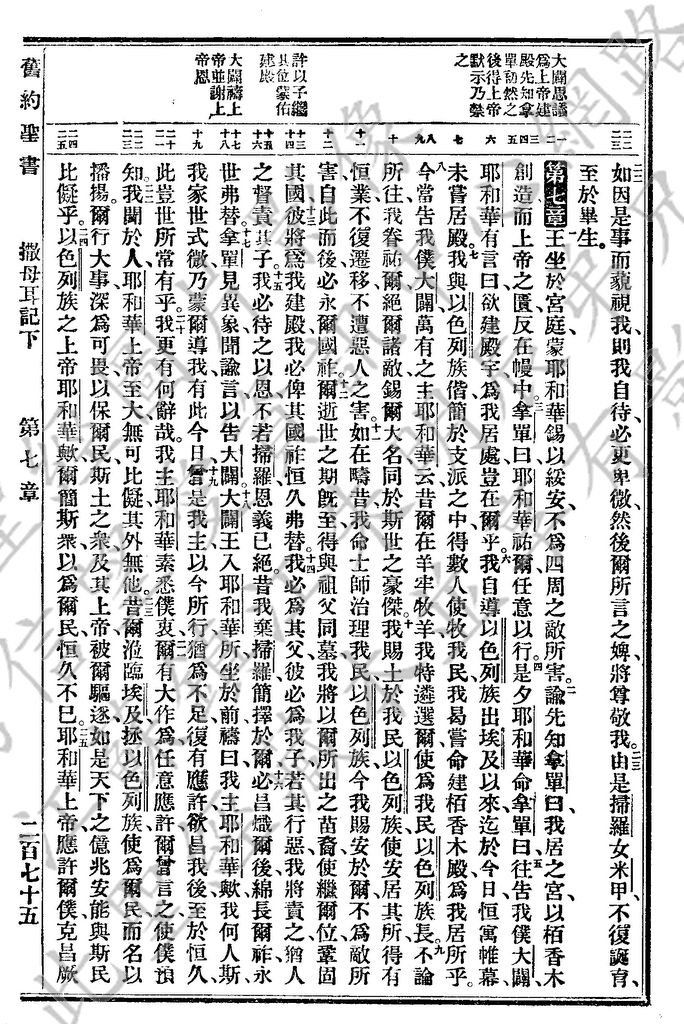 大闢思議爲上帝建殿先知拿單勸然之後得上帝默示乃禁之
許以子繼其位蒙佑建殿
大闢禱上帝並謝上帝恩
如因是事而藐視我則我自待必更卑微然後爾所言之婢將尊敬我二三由是掃羅女米甲不復誕育、
至於畢生。
第七章王坐於宮庭蒙耶和華錫以綏安不爲四周之敵所害二諭先知拿單曰我居之宮以栢香木
創造而上帝之匱反在幔中三拿單曰耶和華祐爾任意以行四是夕耶和華命拿單曰五往告我僕大闢、
耶和華有言曰欲建殿宇爲我居處豈在爾乎六我自導以色列族出埃及以來迄於今日恒寓帷幕
未嘗居殿七我與以色列族偕簡於支派之中得數人使牧我民我曷嘗命建栢香木殿爲我居所乎。
八今當告我僕大闢萬有之主耶和華云昔爾在羊牢牧羊我特遴選爾使爲我民以色列族長九不論
所往我眷祐爾絕爾諸敵錫爾大名同於斯世之豪傑十我賜土於我民以色列族使安居其所得有
恒業不復遷移不遭惡人之害十一如在疇昔我命士師治理我民以色列族今我賜安於爾不爲敵所
害自此而後必永爾國祚十二爾逝世之期旣至得與祖父同墓我將以爾所出之苗裔使繼爾位鞏固
其國十三彼將爲我建殿我必俾其國祚恒久弗替十四我必爲其父彼必爲我子若其行惡我將責之猶人
之督責其子十五我必待之以恩不若掃羅恩義已絕昔我棄掃羅簡擇於爾十六必昌熾爾後綿長爾祚永
世弗替十七拿單見異象聞諭言以告大闢十八大闢王入耶和華所坐於前禱曰我主耶和華歟我何人斯
我家世式微乃蒙爾導我有此今日十九曾是我主以今所行猶爲不足復有應許欲昌我後至於恒久、
此豈世所常有乎二十我更有何辭哉我主耶和華素悉僕衷二一爾有大作爲任意應許爾曾言之使僕預
知二二我聞於人耶和華上帝至大無可比儗其外無他二三昔爾涖臨埃及拯以色列族使爲爾民而名以
播揚爾行大事深爲可畏以保爾民斯土之衆及其上帝被爾驅逐如是天下之億兆安能與斯民
比儗乎二四以色列族之上帝耶和華歟爾簡斯衆以爲爾民恒久不已二五耶和華上帝應許爾僕克昌厥
舊約聖書　撒母耳記下　第七章　二百七十五